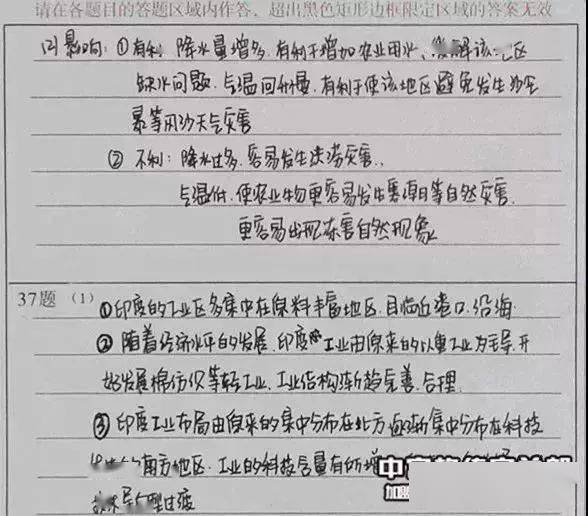 请在各题目的答题区域内作答，超出黑色矩形边框限定区域的答案无效
(2)影响：①有利：降水量增多，有利于增加农业用水、缓解该地区
缺水问题，气温回升慢，有利于使该地区避免发生沙尘
暴等风沙天气灾害
②不利：降水过多，容易发生洪涝灾害，
气温低，使农业物更容易发生寒潮等自然灾害，
更容易出现冻害自然现象
37题 (1) ①印度的工业区多集中在原料丰富地区，且临近港口，沿海
②随着经济水平的发展，印度 工业由原来的以重工业为主导，开
始发展棉纺织等轻工业，工业结构渐趋完善，合理
③印度工业布局由原来的集中分布在北方逐渐集中分布在科技
的南方地区，工业的科技含量有所增
型过渡